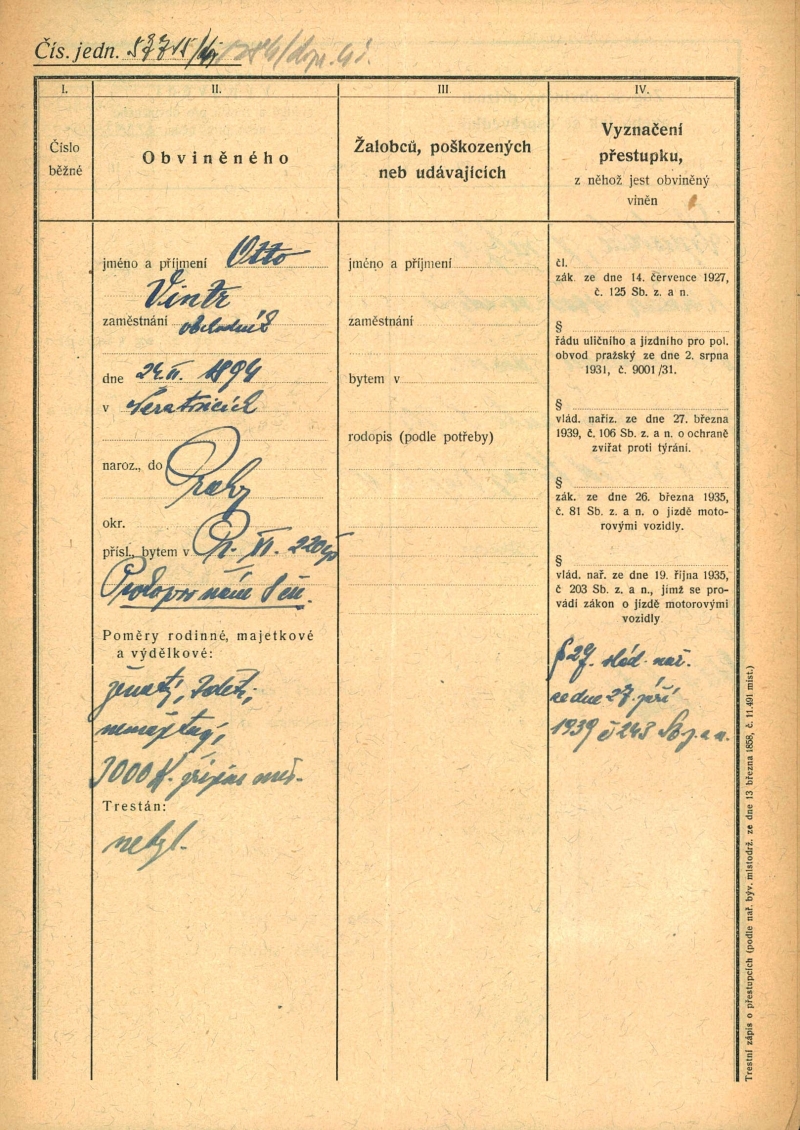 Čís. jedn.
I.
Číslo
běžné
II.
Obviněného
III
Žalobců, poškozených
neb udávajících
IV.
Vyznačení
přestupku,
z něhož jest obviněný
viněn
jméno a příjmení Otto
Vintr
zaměstnání obchodník
dne 24.II. 1894
v
naroz., do
Prahy
okr.
přísl., bytem v P. II.
Poměry rodinné, majetkové
a výdělkové:
ženatý, 2 děti,
nemajetný,
3000 K. příjem měs.
Trestán:
nebyl.
jméno a příjmení
zaměstnání
bytem v
rodopis (podle potřeby)
čl.
zák. ze dne 14. července 1927,
č. 125 Sb. z. a n.
§
řádu uličního a jízdního pro pol.
obvod pražský ze dne 2. srpna
1931, č. 9001/31.
§
vlád. naříz. ze dne 27. března
1939, č. 106 Sb. z. a n. o ochraně
zvířat proti týrání.
§
zák. ze dne 26. března 1935,
č. 81 Sb. z. a n. o jízdě moto-
rovými vozidly.
§
vlád. nař. ze dne 19. října 1935,
č 203 Sb. z. a n., jímž se pro-
vádí zákon o jízdě motorovými
vozidly
§ 27. vlád. nař.
ze dne 27. září
1939 č 243 Sb. z. a n.
Trestní zápis o přestupcích (podle nař. býv. místodrž. ze dne 13 března 1858, č. 11.491 míst.)